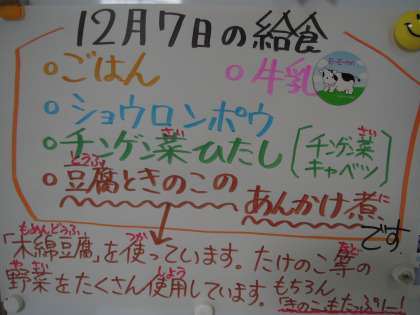 12月7日の給食
○ごはん ○牛乳
○ショウロンポウ
○チンゲン菜ひたし [チンゲン菜 キャベツ]
○豆腐ときのこのあんかけ煮です
「木綿豆腐」を使っています。たけのこ等の
野菜をたくさん使用しています。もちろん
「きのこもたっぷりー!